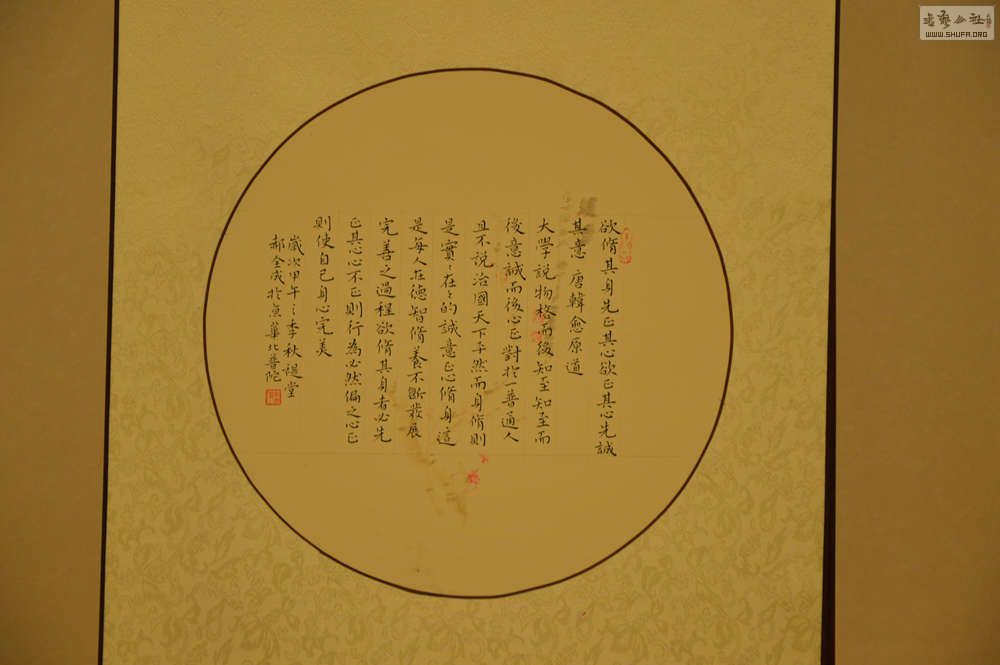 欲脩其身先正其心欲正其心先誠
其意 唐韓愈原道
大学說物格而後知至知至而
後意誠而後心正對於一普通人
且不说治國天下平然而身脩則
是實〻在〻的誠意正心脩身這
是每人在德智脩養不斷發展
完善之過程欲脩其身者必先
正其心心不正則行為必然偏之心正
則使自己身心完美
歲次甲午〻季秋禔堂
郝全成於京華北普陀
书艺公社
WWW.SHUFA.ORG